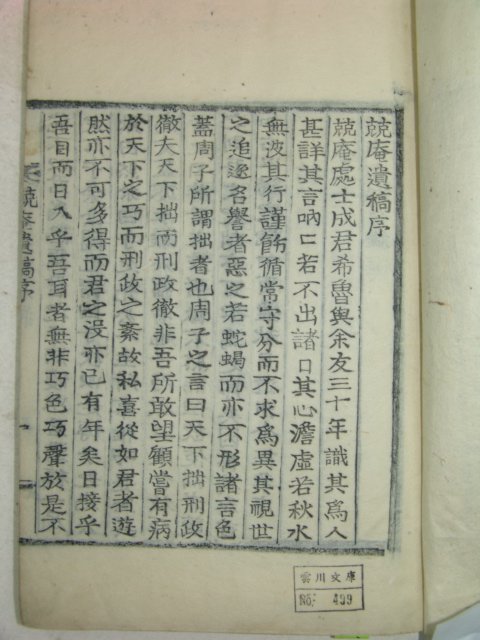 兢庵遺稿序
兢庵處士成君希魯與余友三十年識其為人
甚詳其言吶口若不出諸口其心澹虛若秋水
無波其行謹飭循常守分而不求為異其視世
之追逐名譽者惡之若蛇蝎而亦不形諸言色
蓋周子所謂拙者也周子之言曰天下拙刑政
徹大天下拙而刑政徹非吾所敢望顧嘗有病
於天下之巧而刑政之紊故私喜從如君者遊
然亦不可多得而君之沒亦已有年矣日接乎
吾目而日入乎吾耳者無非巧色巧聲於是不
兢庵遺稿序
一
雲川文庫
No. 499